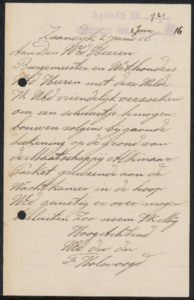 Agenda No. 961
3 Juni 16
Zaandijk 2 Juni 16
Aan den WEd. Heeren
Burgemeester en Wethouders
WEd Heeren met deze Wilde
Ik UEd vriendelijk verzoeken
om een schuurtje te mogen
bouwen volgens bijgaande
teekening op de Grond van
de Maatschappij Alkmaar
Packet grenzende aan de
Wachtkamer in de hoop
UEd gunstig er over moge
besluiten Zoo noem Ik Mij
Hoog Achtend
UEd dw dn
F Wolvoogd